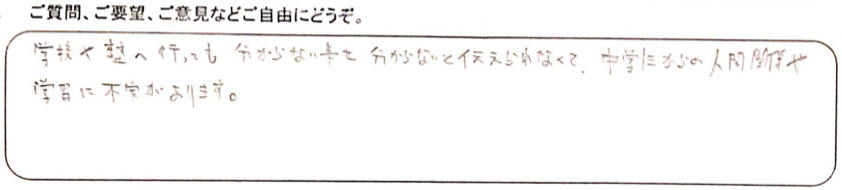 ご質問、ご要望、ご意見などご自由にどうぞ。
学校や塾へ行っても 分からない事を 分からないと伝えられなくて、中学生からの人間関係や
学習に不安があります。